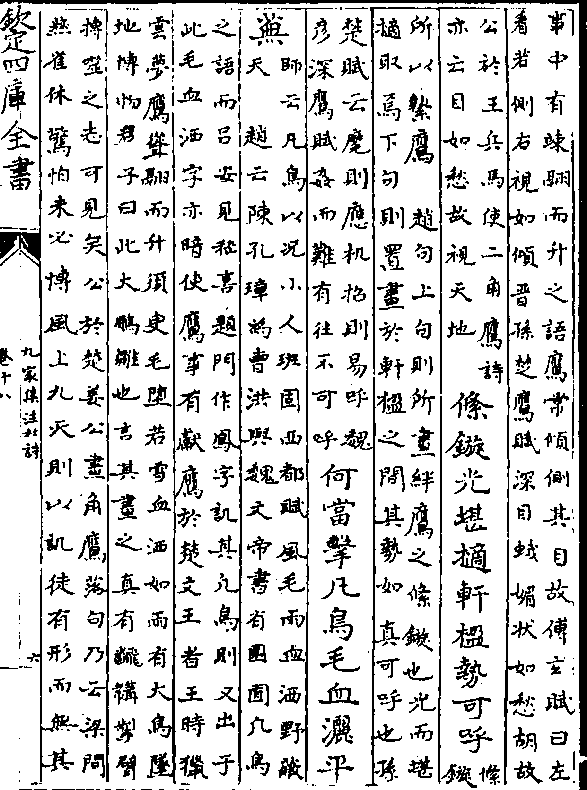 事中有竦翮而升之語鷹常傾側其目故傅玄賦曰左
看若側右視如傾晉孫楚鷹賦深目蛾媚狀如愁胡故
公於王兵馬使二角鷹詩
亦云目如愁故視天地
絛鏇光堪擿軒楹勢可呼
絛
鏇
所以縶鷹 趙句上句則所畫絆鷹之絛鏇也光而堪
擿取焉下句則置畫於軒楹之間其勢如真可呼也孫
楚賦云麾則應机招則易呼魏
彦深鷹賦姦而難有往不可呼
何當擊凡鳥毛血灑平
蕪
師云凡鳥以況小人班固西都賦風毛雨血洒野蔽
天 趙云陳孔璋為曹洪與魏文帝書有園囿凡鳥
之語而吕安見嵇喜題門作鳳字訊其凡鳥則又出于
此毛血洒字亦暗使鷹事有獻鷹於楚文王者王時獵
雲夢鷹聳翮而升須臾毛墮若雪血洒如雨有大鳥墜
地博物君子曰此大鵬雛也言其畫之真有韝掣臂
摶空之志可見矣公於楚姜公畫角鷹落句乃云梁間
燕雀休驚怕未必摶風上九天則以訊徒有形而無其
欽定四庫全書
九家集注杜詩
卷十八
六